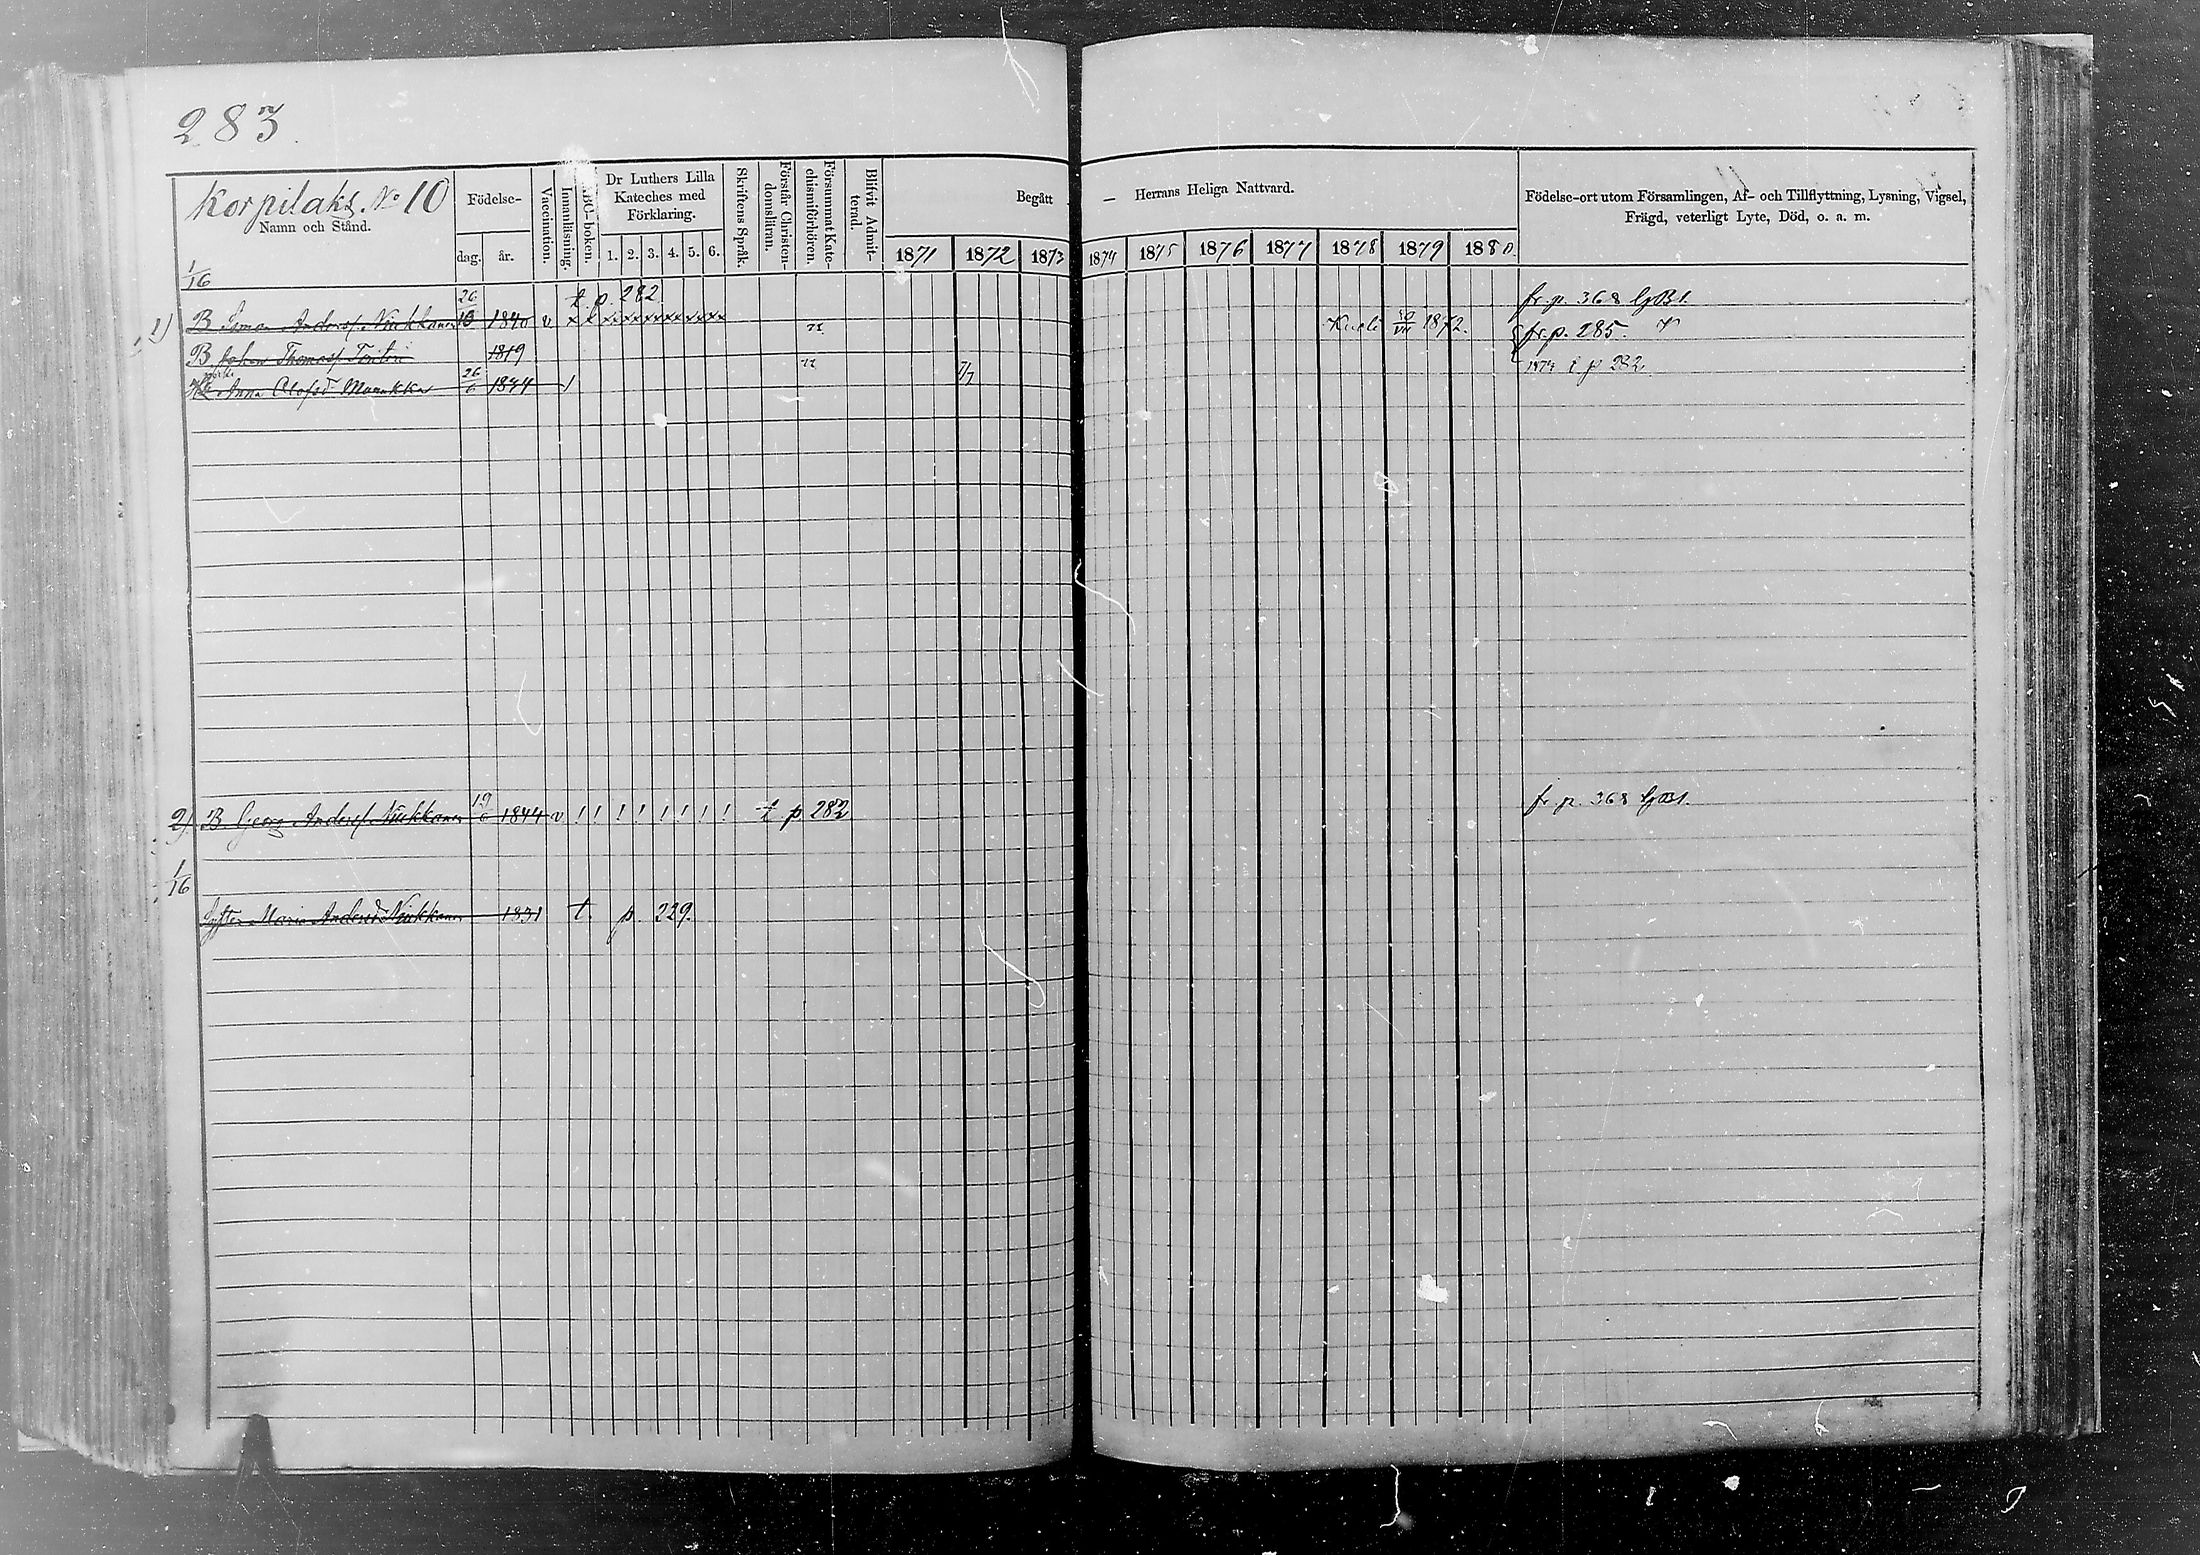 283
Korpilaks. No 10
Namn och Stånd.
Födelse-
dag. år.
Vaccination.
Innanläsning.
ABC-boken.
Dr Luthers Lilla Kateches med Förklaring.
1. 2. 3. 4. 5. 6.
Skriftens Språk.
Förstår Christendomsläran.
Försummat Katechismiförhören.
Blifvit Admitterad.
Begått — Herrans Heliga Nattvard.
1871 1872 1873 1874 1875 1876 1877 1878 1879 1880
Födelse-ort utom Församlingen, Af- och Tillflyttning, Lysning, Vigsel,
Frägd, veterligt Lyte, Död, o. a. m.
1/16
t. p. 282 fr. p. 368 GB1.
1) B Simon Anders. Niukkanen 26/10 1840 v x x x x x x x x 1872. fr. p. 285.
B Johan Thomas. 1819 1874 t p 282
Anna Olofsd 26/6 1844 1 7/7
2) B Georg Anders. Niukkanen 19/6 1844 v ! ! ! ! ! ! ! ! t p 282 fr. p. 368 GB1.
1/16
Syster Maria Andersd Niukkanen 1831 t. p. 229.